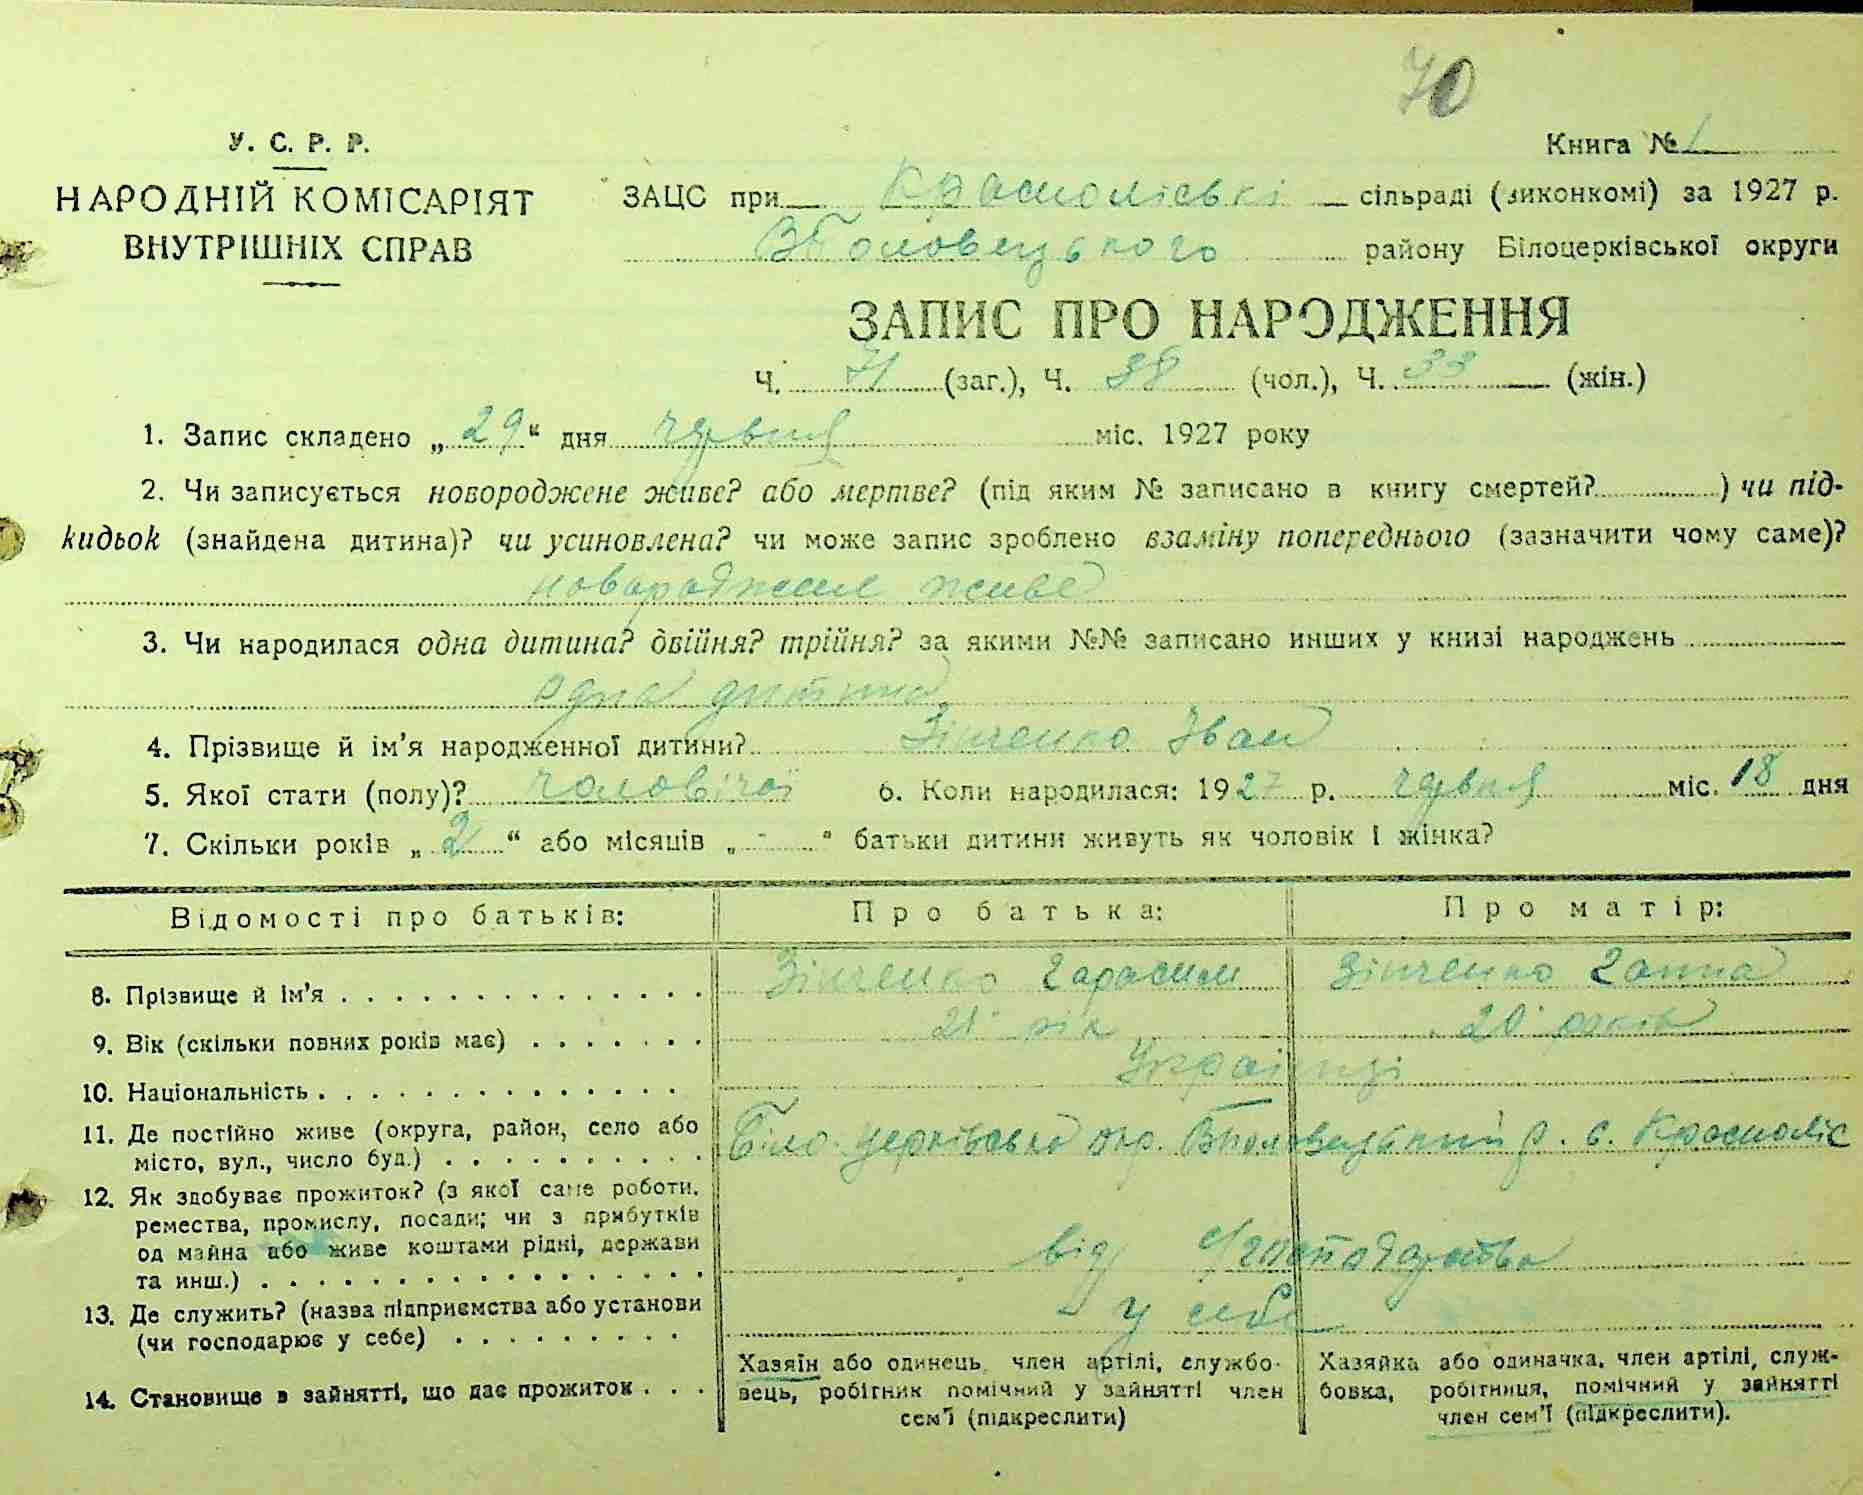 70
У. С. Р. Р.
Книга № 1
НАРОДНІЙ КОМІСАРІЯТ
ВНУТРІШНІХ СПРАВ
ЗАЦС при Красноліські сільраді (виконкомі) за 1927 р.
ВПоловецького району Білоцерківської округи
ЗАПИС ПРО НАРОДЖЕННЯ
Ч. 71 (заг.), Ч. 38 (чол.), Ч. 33 (жін.)
1. Запис складено „29“ дня червня міс. 1927 року
2. Чи записується новороджене живе? або мертве? (під яким № записано в книгу смертей? ) чи під-
кидьок (знайдена дитина)? чи усиновлена? чи може запис зроблено взаміну попереднього (зазначити чому саме)?
живе
3. Чи народилася одна дитина? двійня? трійня? за якими №№ записано инших у книзі народжень
одна дитина
4. Прізвище й ім’я народженної дитини? Зінченко Іван
5. Якої стати (полу)? чоловічої 6. Коли народилася: 1927 р. червня міс. 18 дня
7. Скільки років „2“ або місяців „-“ батьки дитини живуть як чоловік і жінка?
Відомості про батьків: Про батька: Про матір:
8. Прізвище й ім’я Зінченко Гарасим Зінченко Ганна
9. Вік (скільки повних років має) 21 рік 20 років
10. Національність Українці
11. Де постійно живе (округа, район, село або
місто, вул., число буд.) Біло-церківська окр. Вполовецький р. с. Красноліс
12. Як здобуває прожиток? (з якої саме роботи.
ремества, промислу, посади; чи з прибутків
од майна або живе коштами рідні, держави
та инш.) від с/господарства
13. Де служить? (назва підприємства або установи
(чи господарює у себе) у себе
14. Становище в зайнятті, що дає прожиток
Хазяїн або одинець, член артілі, службо-
вець, робітник помічний у зайнятті член
сем’ї (підкреслити)
Хазяйка або одиначка, член артілі, служ-
бовка, робітниця, помічний у зайнятті
член сем’ї (підкреслити).